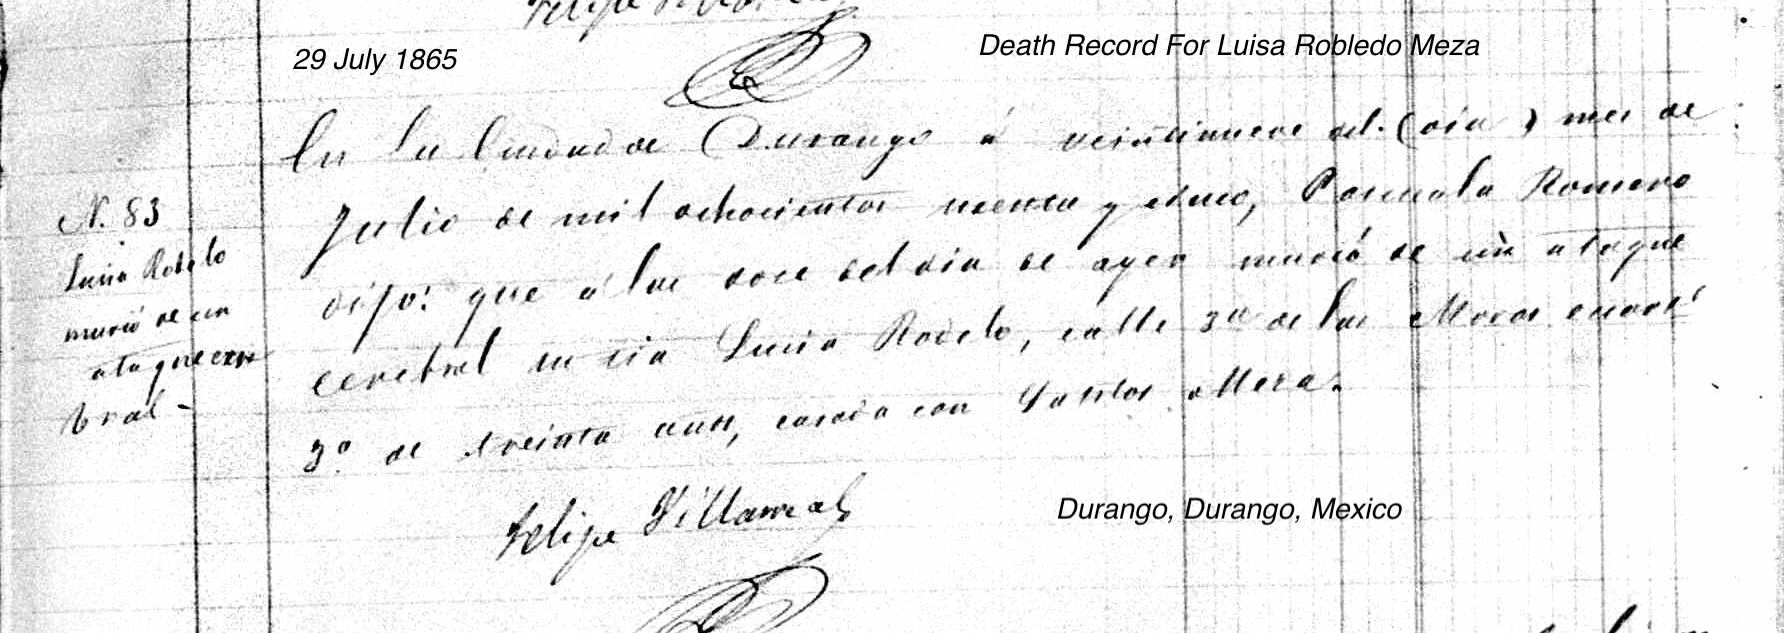 Felipe Villarreal
29 July 1865
Death Record For Luisa Robledo Meza
En la Ciudad de Durango á veintinueve del (dia) mes de
Julio de mil ochocientos sesenta y cinco, Pascuala Romero
dijo: que á las doce del dia de ayer murió de un ataque
cerebral su tia Lucia Rodelo, calle 3a de las Moras cuartel
3o. de treinta años, casada con Santos Meza.
N. 83
Lucia Rodelo
murió de un
ataque cere
bral -
Felipe Villarreal
Durango, Durango, Mexico